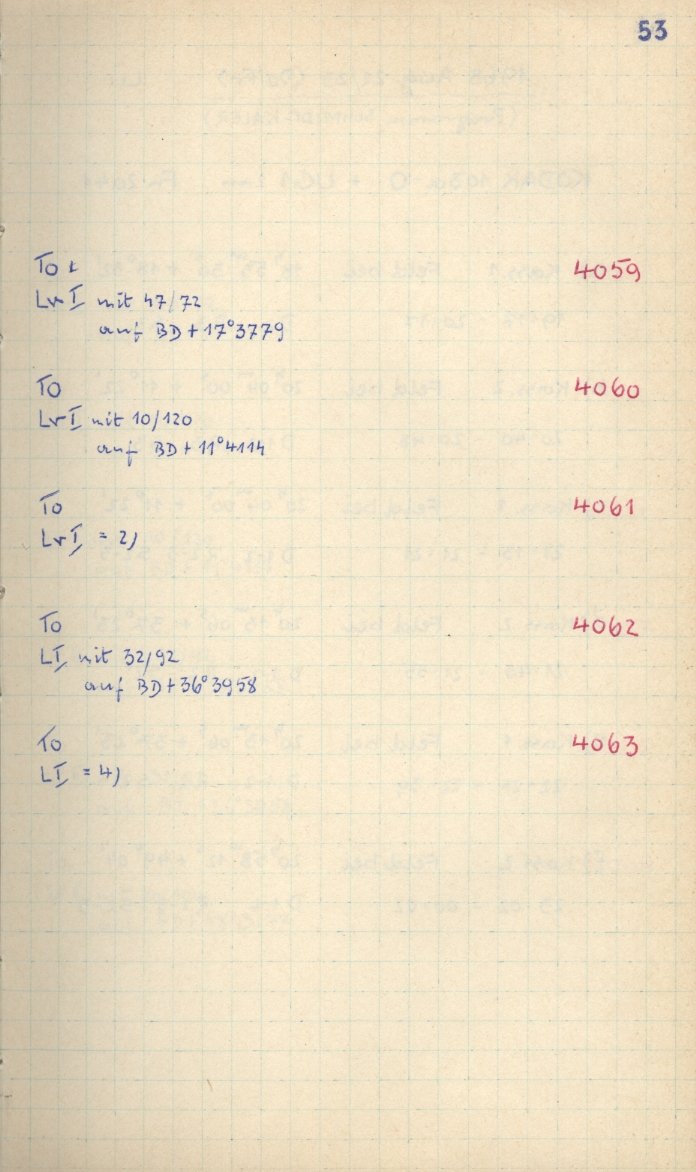 53
To + 4059
LvI mit 47/72
auf BD+17°3779
To 4060
LvI mit 10/120
auf BD+11°4114
To 4061
LvI = 2)
To 4062
LI mit 32/92
auf BD+36°3958
To 4063
LI = 4)